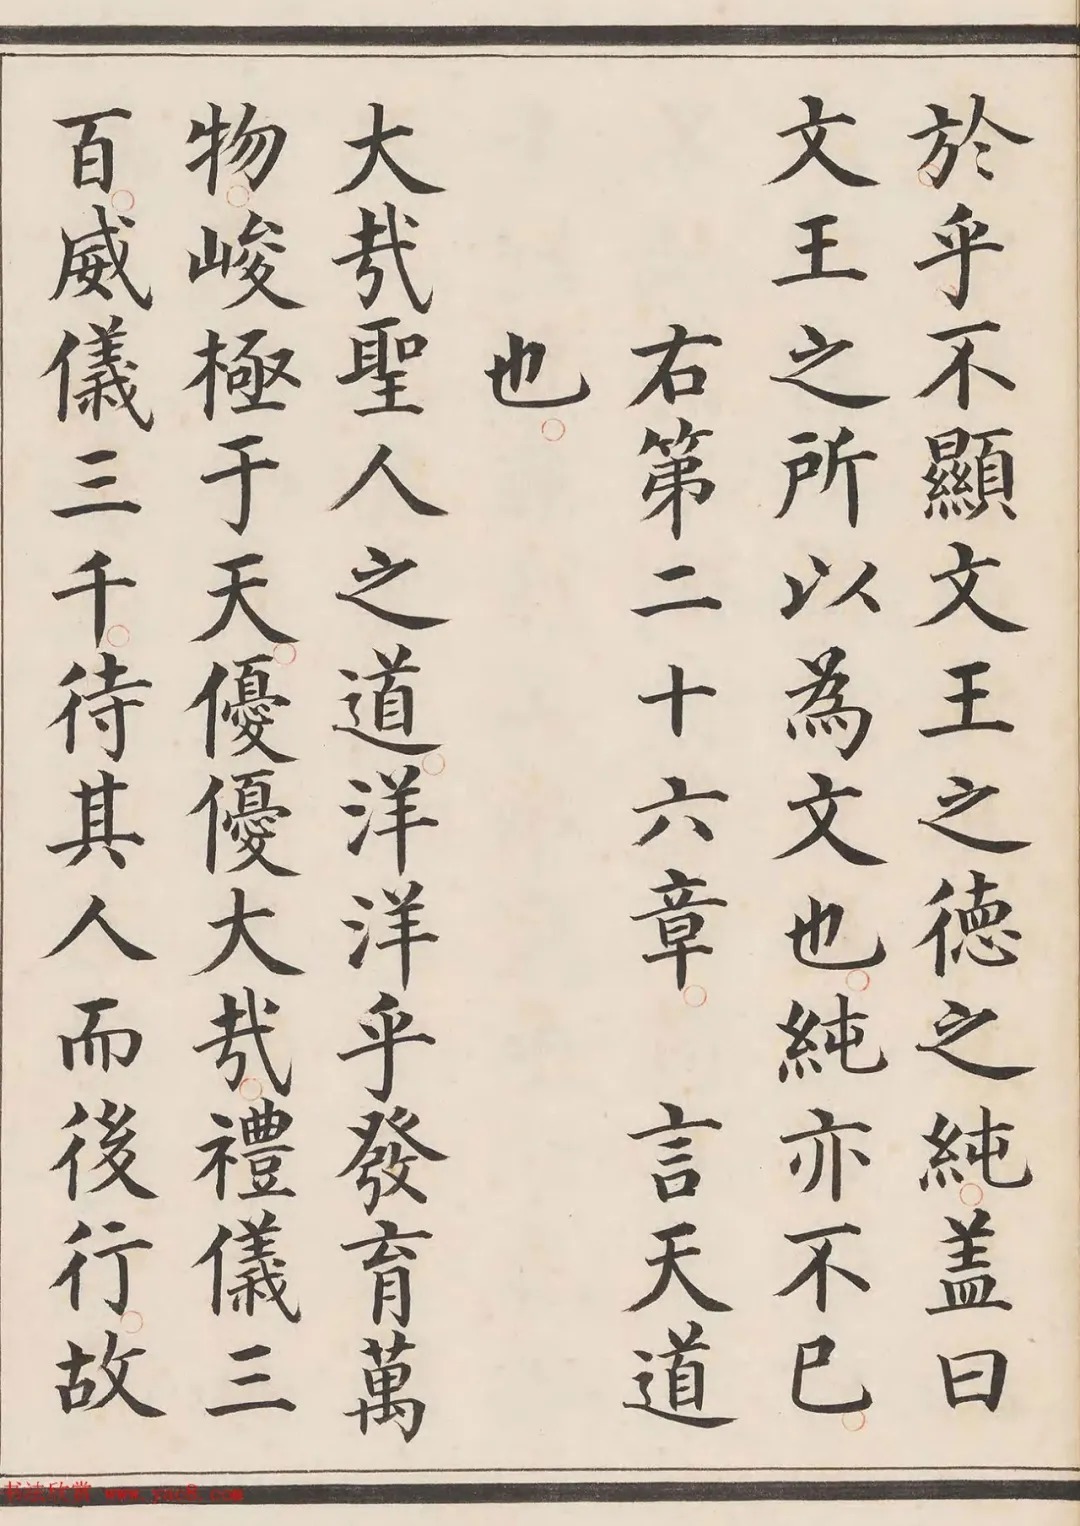 於乎不顯文王之德之純盖曰
文王之所以為文也純亦不已
右第二十六章 言天道
也
大哉聖人之道洋洋乎發育萬
物峻極于天優優大哉禮儀三
百威儀三千待其人而後行故
书法欣赏 www.yac8.com